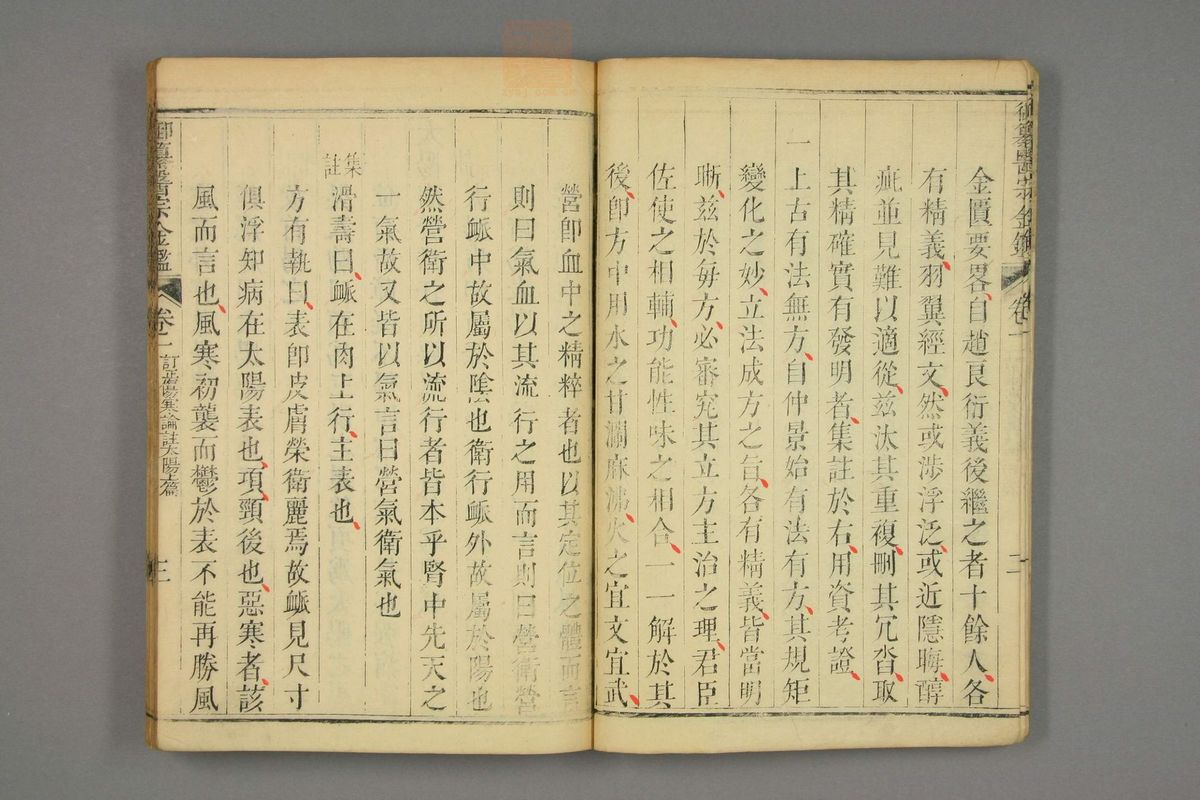 御纂醫宗金鑑 卷一 二
金匱要畧自趙良衍義後繼之者十餘人各
有精義羽翼經文然或涉浮泛或近隱晦醇
疵並見難以適從茲汰其重複刪其冗沓取
其精確實有發明者集註於右用資考證
一上古有法無方自仲景始有法有方其規矩
變化之妙立法成方之旨各有精義皆當明
晰茲於每方必審究其立方主治之理君臣
佐使之相輔功能性味之相合一一解於其
後卽方中用水之甘瀾麻沸火之宜文宜武
營卽血中之精粹者也以其定位之體而言
則曰氣血以其流行之用而言則曰營衛營
行脈中故屬於陰也衛行脈外故屬於陽也
然營衛之所以流行者皆本乎腎中先天之
一氣故又皆以氣言曰營氣衛氣也
集註
滑壽曰脈在肉上行主表也
方有執曰表卽皮膚榮衛麗焉故脈見尺寸
俱浮知病在太陽表也項頸後也惡寒者該
風而言也風寒初襲而鬱於表不能再勝風
御纂醫宗金鑑 卷一 訂正傷寒論註太陽上篇 三